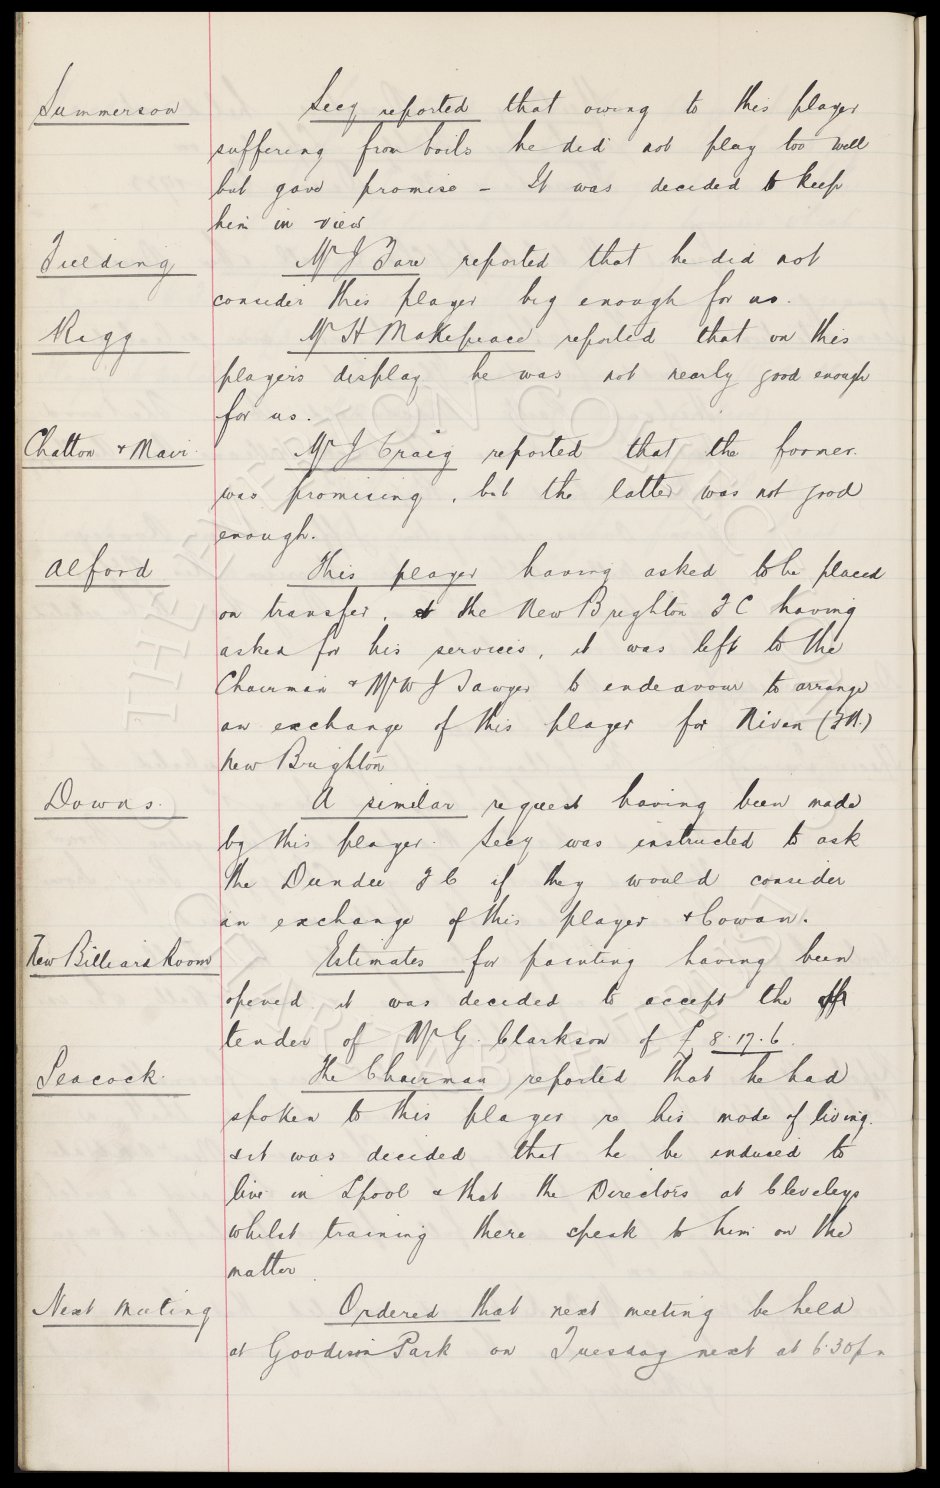 Summerson Secy reported that owing to this player
suffering from boils he did not play too well
but gave promise - It was decided to keep
him in view
Fielding Mr J Fare reported that he did not
consider this player big enough for us.
Rigg Mr H Makepeace reported that on this
players display he was not nearly good enough
for us.
Chatton & Mair Mr J Craig reported that the former
was promising, but the latter was not good
enough.
Alford This player having asked to be placed
on transfer, & the New Brighton F C having
asked for his services, it was left to the
Chairman & Mr W J Sawyer to endeavour to arrange
an exchange of this player for (F.B.)
New Brighton
Downs. A similar request having been made
by this player. Secy was instructed to ask
the Dundee F C if they would consider
an exchange of this player & Cowan.
New Billiard Room Estimates for painting having been
opened it was decided to accept the
tender of Mr G. Clarkson of £8.17.6.
Peacock. The Chairman reported that he had
spoken to this player re his mode of living.
& it was decided that he be induced to
live in Lpool & that the Directors at Cleveleys
whilst training there speak to him on the
matter
Next meeting Ordered that next meeting be held
at Goodison Park on Tuesday next at 6.30pm
THE EVERTON COLLECTION